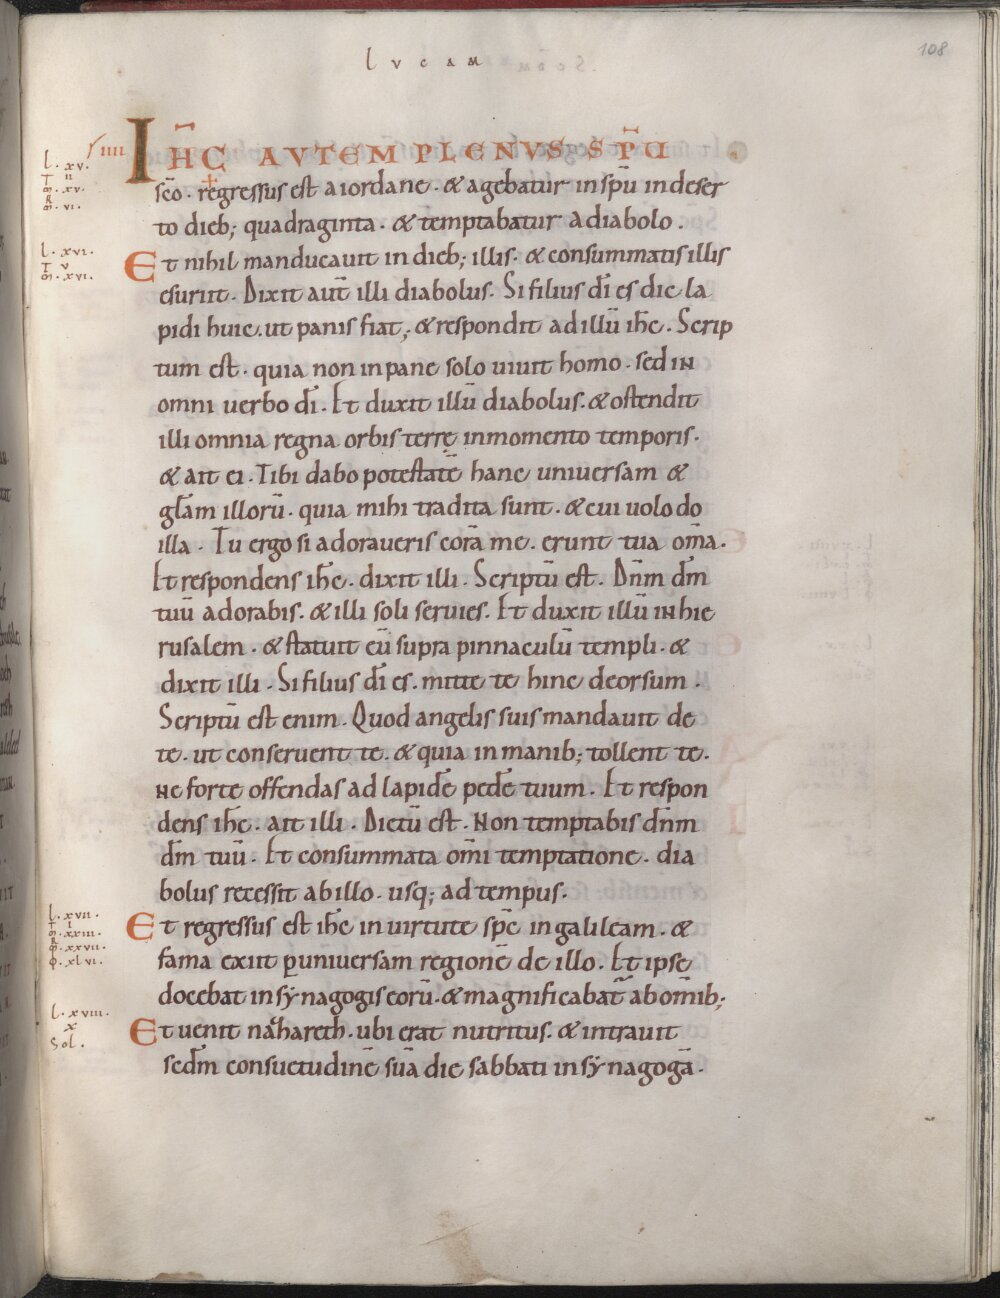 lucam
108
IHC AUTEM PLENUS SPU
l. xv.
iiii
sco. regressus est a iordane. & agebatur in spu in deser
to dieb; quadraginta. & temptabatur a diabolo.
l. xvi.
Et nihil manducauit in dieb; illis. & consummatis illis
esuriit. Dixit aut illi diabolus. Si filius di es dic la
pidi huic. ut panis fiat; & respondit ad illu ihc. Scrip
tum est. quia non in pane solo uiuit homo. sed in
omni uerbo di. Et duxit illu diabolus. & ostendit
illi omnia regna orbis terrę in momento temporis.
& ait ei. Tibi dabo potestate hanc uniuersam &
glam illoru. quia mihi tradita sunt. & cui uolo do
illa. Tu ergo si adoraueris cora me. erunt tua oma.
Et respondens ihc. dixit illi. Scriptu est. Dnm dm
tuu adorabis. & illi soli seruies. Et duxit illu in hie
rusalem. & statuit eu supra pinnaculu templi. &
dixit illi. Si filius di es. mitte te hinc deorsum.
Scriptu est enim. Quod angelis suis mandauit de
te. ut conseruent te. & quia in manib; tollent te.
ne forte offendas ad lapide pede tuum. Et respon
dens ihc. ait illi. Dictu est. Non temptabis dnm
dm tuu. Et consummata omi temptatione. dia
bolus recessit ab illo. usq; ad tempus.
l. xvii.
Et regressus est ihc in uirtute spc in galileam. &
fama exiit p uniuersam regione de illo. Et ipse
docebat in synagogis eoru. & magnificabat ab omib;
l. xviii.
x
Sol.
Et uenit nazhareth. ubi erat nutritus. & intrauit
scdm consuetudine sua die sabbati in synagoga.